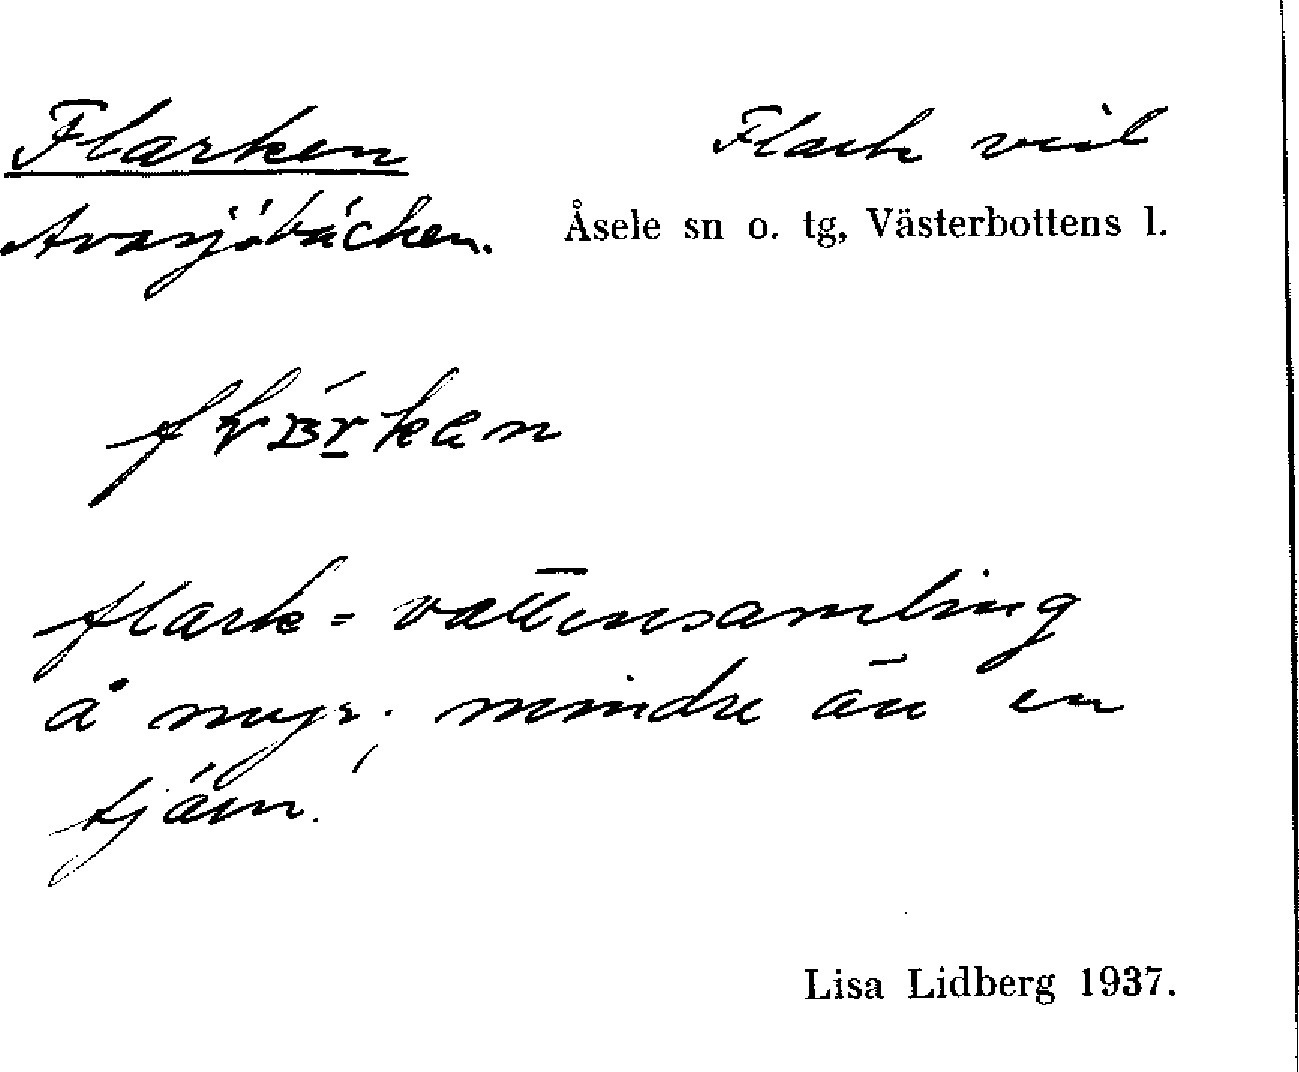 Flarken
Flark vid
Avasjöbäcken.
Åsele sn o. tg, Västerbottens l.
flark = vattensamling
å myr, mindre än en
tjärn.
Lisa Lidberg 1937.